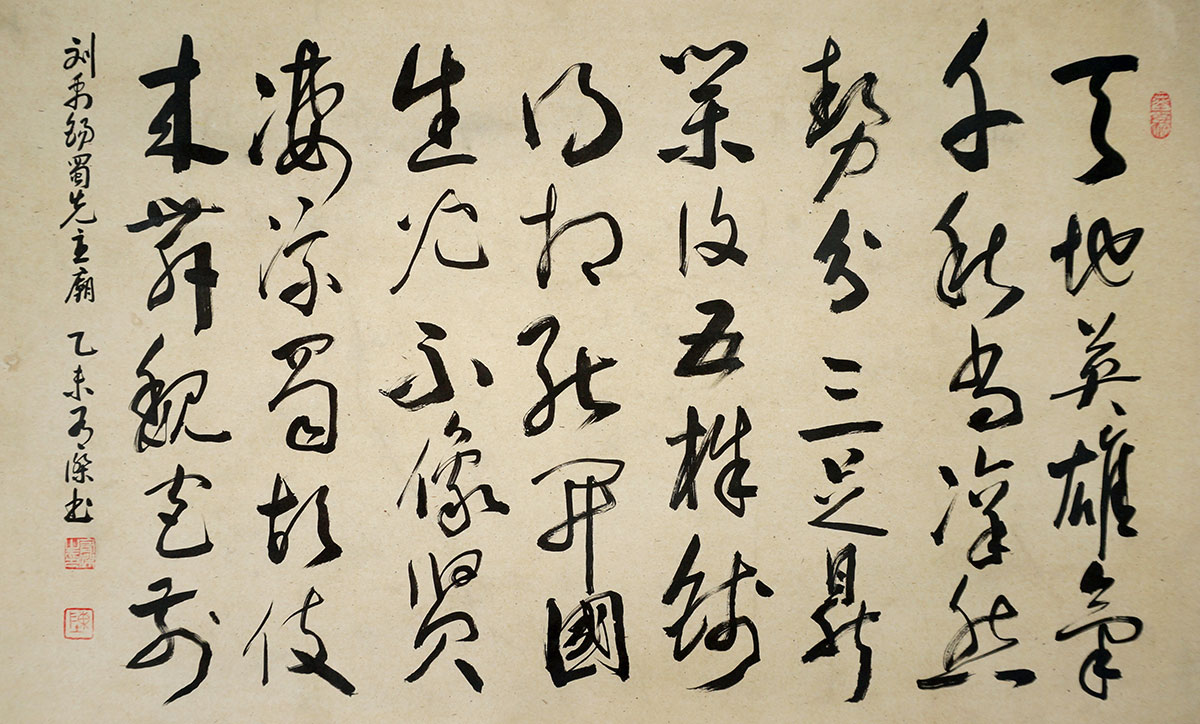 天地英雄氣
千秋尚凛然
勢分三足鼎
業復五株錢
得相能開國
生兒不像賢
凄涼蜀故伎
来舞魏宮前
刘禹錫蜀先主廟 乙未有傑书